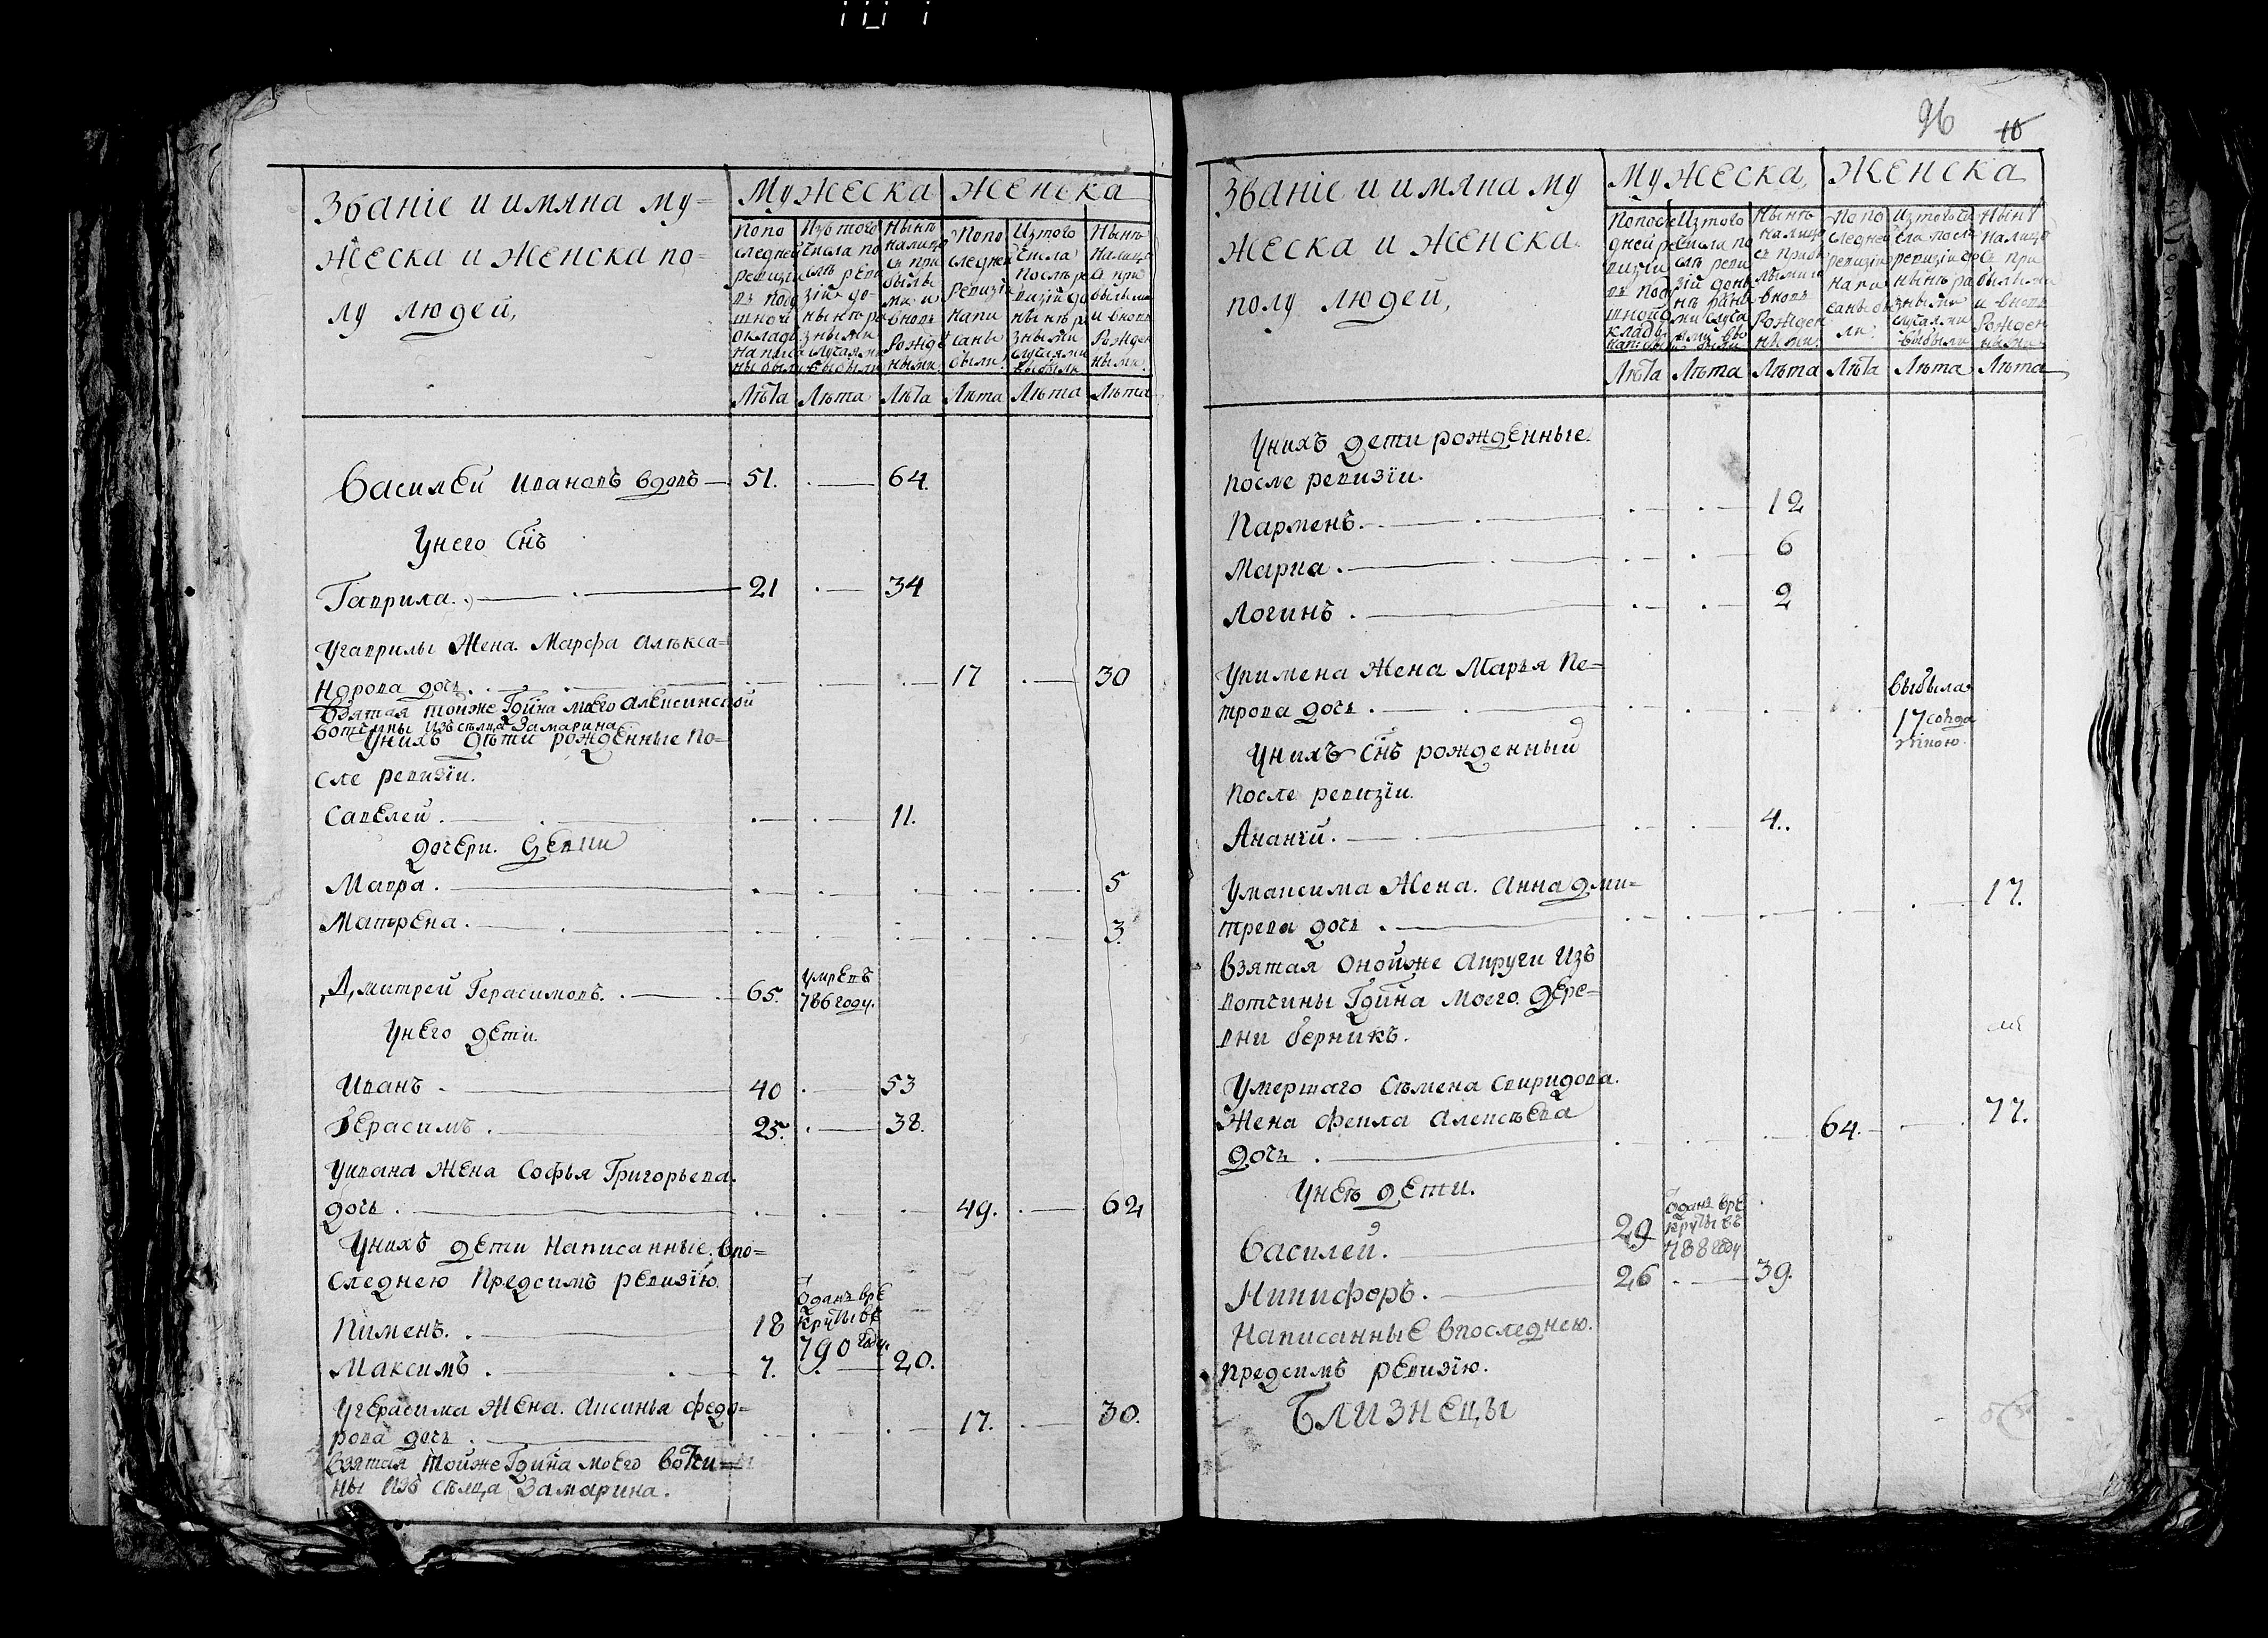 Званіе и имяна му=
жеска и женска по=
лу людей,
Мужеска
Женска
По по
следней
ревизіи
въ поду
шной
окладъ
написа
ны были
Изъ того
числа по
слѣ реви
зіи до
нынѣ ра
зными
случаями
выбыли
Нынѣ
налицо
съ при
былы
ми и
вновь
рожде
ными
По по
следней
ревизіи
напи
саны
были
Изъ того
числа
послѣ ре
визіи до
нынѣ ра
зными
случаями
выбыли
Нынѣ
налицо
съ при
былыми
и вновь
рожден
ными.
Лѣта Лѣта Лѣта Лѣта Лѣта Лѣта
Василей Ивановъ вдовъ 51. 64.
У него сн҃ъ
Гаврила. 21 34
У гаврилы жена Марфа Алѣкса=
ндрова дочь. 17 30
взятая той же Гдина моего алексинской
вотчины изъ сѣльца Замарина
У нихъ дѣти рожденные по=
сле ревизіи.
Савелей. 11.
дочери. девки
Мавра. 5
Матрена. 3.
Дмитрей Герасимовъ. 65. умрѣвъ
786 году.
У него дети.
Иванъ 40 53
Герасимъ. 25. 38.
У ивана жена Софья Григорьева
дочь. 49. 62
У нихъ дети написанные впо=
следнею предсимъ ревизію.
Пименъ. 18 Отданъ врѣ
круты въ
790 году.
Максимъ. 7. 20.
У герасима жена. Аксинья федо=
рова дочь 17. 30.
взятая той же Гдина моего вотчи=
ны изъ сѣльца Замарина.
96 10
Званіе и имяна му
жеска и женска
полу людей,
Мужеска
Женска
По после
дней ре
визіи
въ поду
шной о
кладъ
написаны
Изъ того
числа по
слѣ реви
зіи до ны
нѣ разны
ми случа
ями вы
были
Нынѣ
налицо
съ прибы
лыми и
вновь
рожден
ными.
По по
следней
ревизіи
напи
саны бы
ли.
Изъ того чи
сла послѣ
ревизіи до
нынѣ ра
зными
случаями
выбыли
Нынѣ
налицо
съ при
былыми
и вновь
рожден
ными
Лѣта Лѣта Лѣта Лѣта Лѣта Лѣта
У нихъ дети рожденные.
после ревизіи.
Парменъ. 12
Марка. 6
Логинъ. 2
У пимена жена Марья Пе=
трова дочь. выбыла
17
У нихъ сн҃ъ рожденный
после ревизіи.
Ананій. 4.
У максима жена. Анна дми=
трева дочь. 17.
взятая оной же округи изъ
вотчины Гдина моего. дере=
вни берникъ.
Умершаго Сѣмена Спиридова.
жена фекла алексѣева
дочь. 64. 77.
У неѣ дети.
Василей. 29 Отданъ врѣ
круты въ
788 году
Никифоръ. 26 39.
Написанные впоследнею.
предсимъ ревизію.
Близнецы